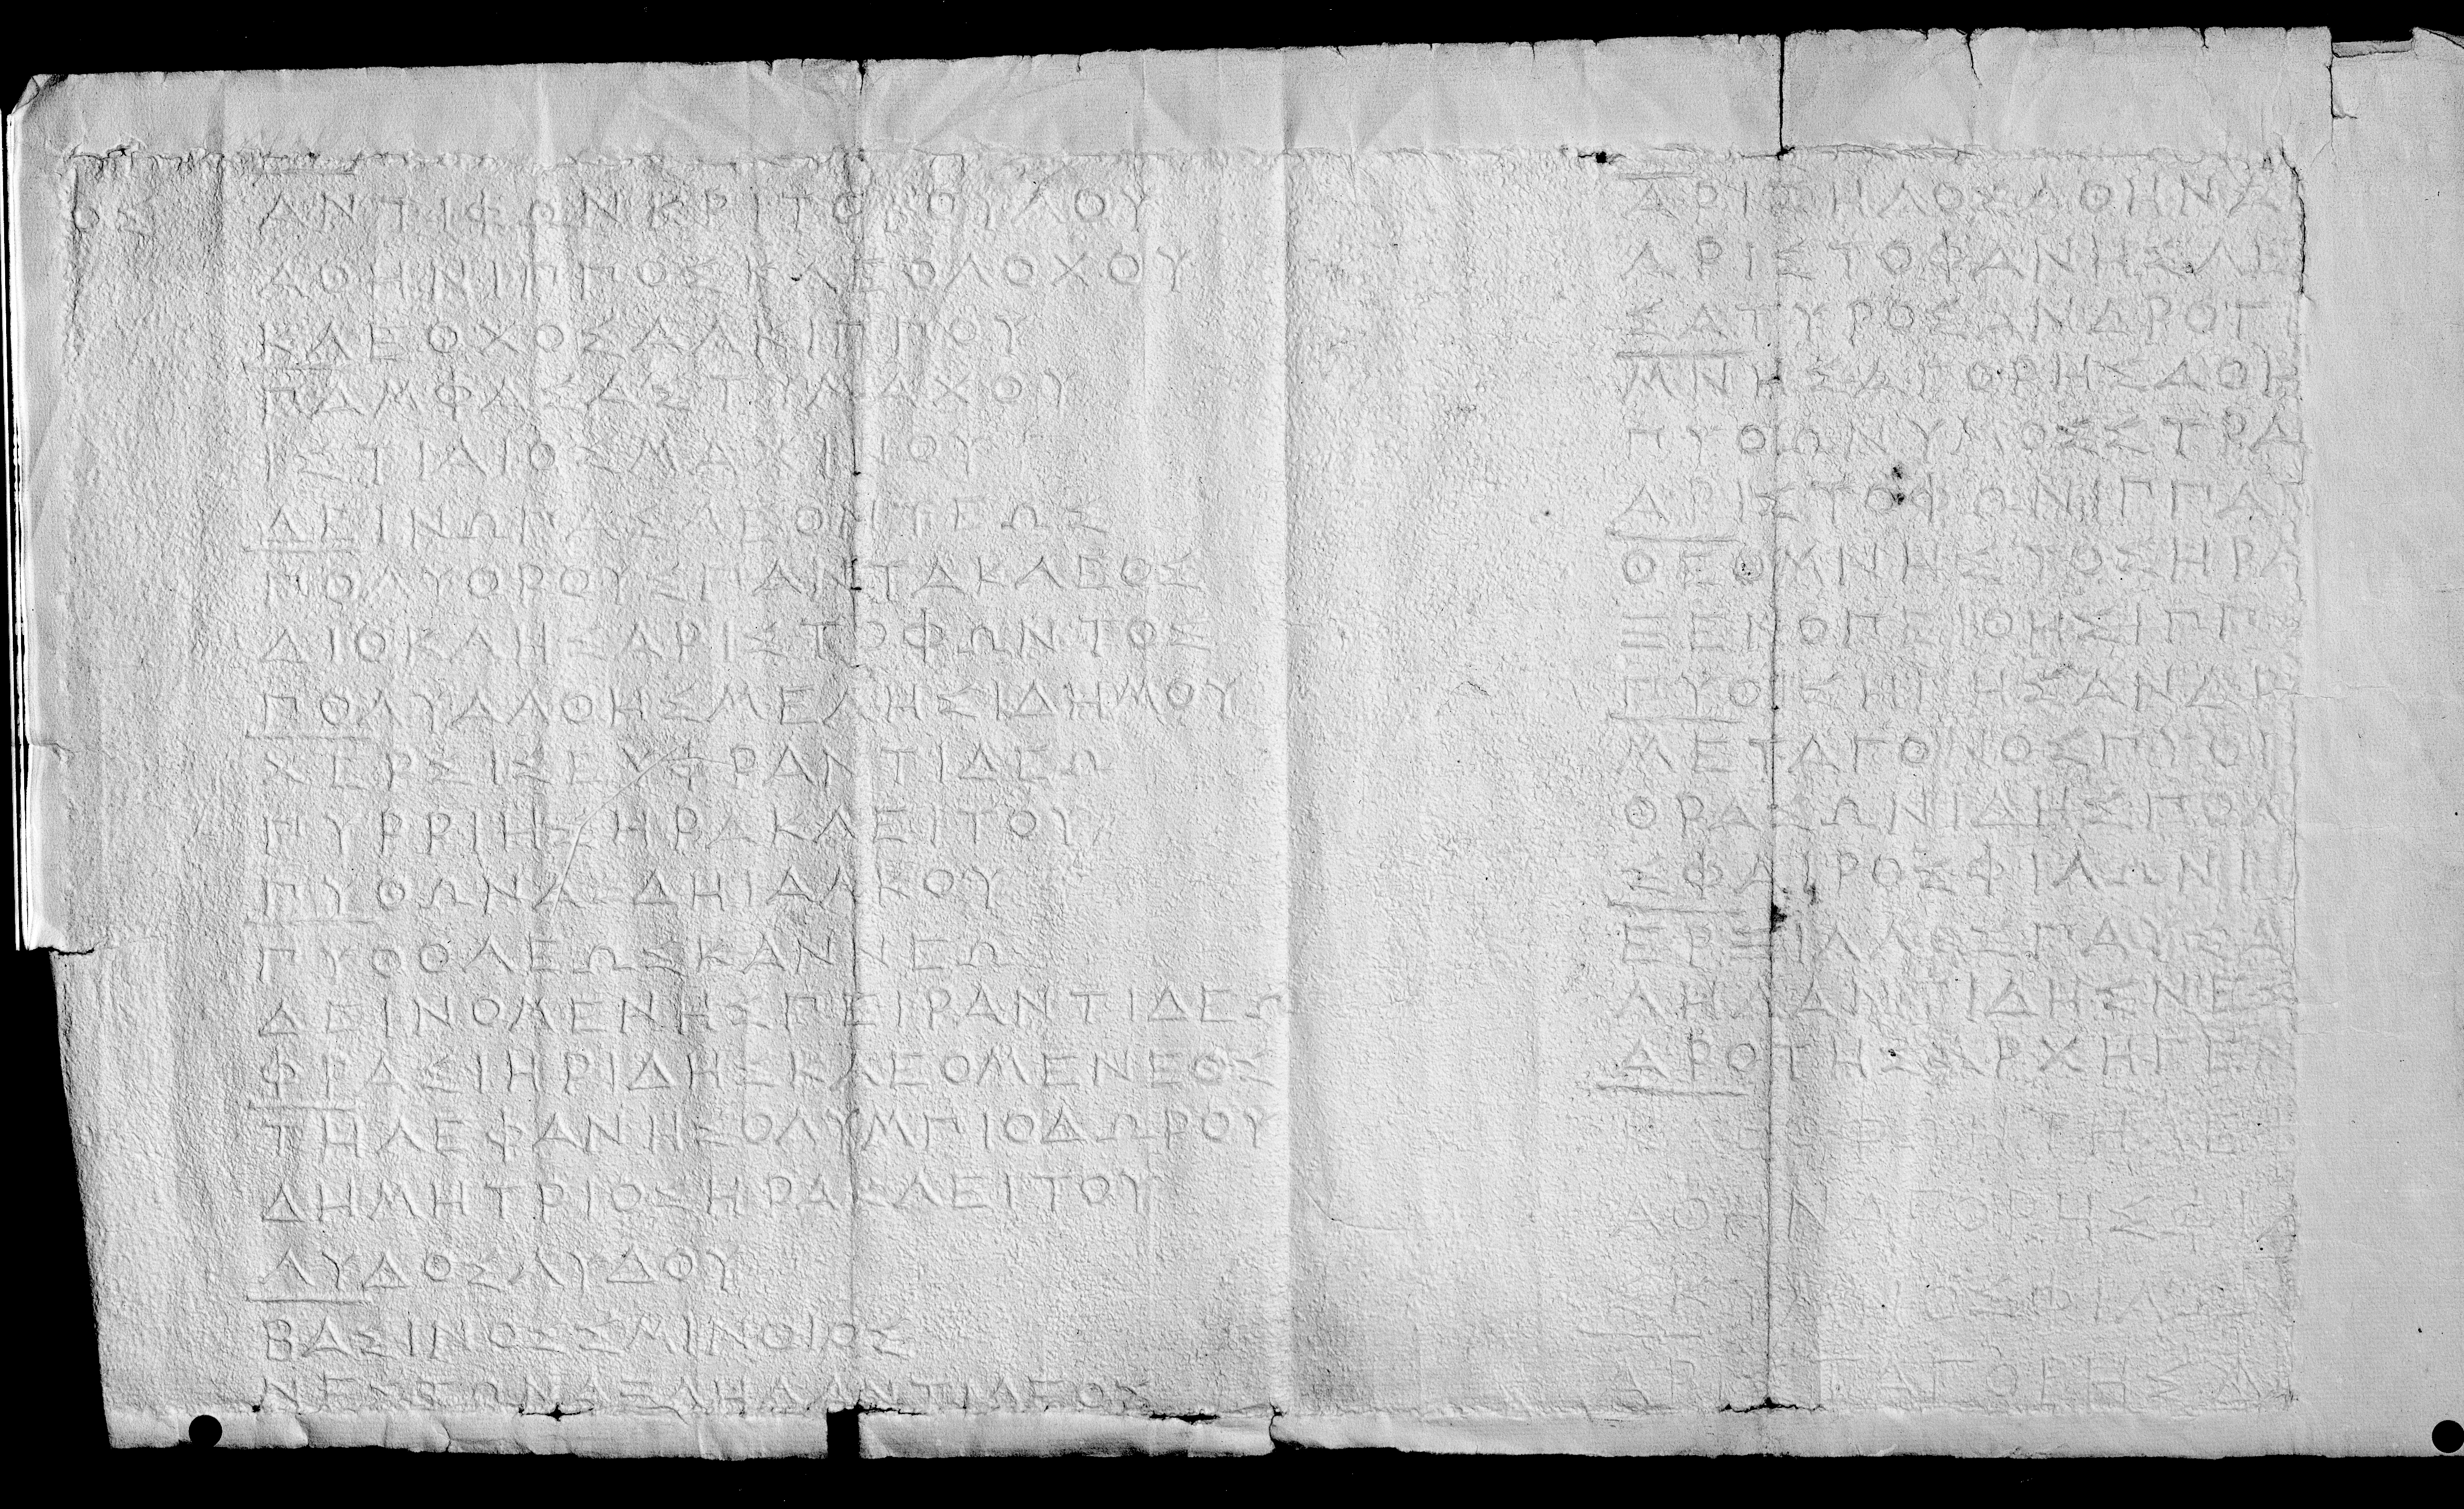 ΟΣ
ΑΝΤΙΦΩΝΚΡΙΤΟΒΟΥΛΟΥ
ΑΘΗΝΙΠΠΟΣΚΛΕΟΛΟΧΟΥ
ΚΛΕΟΧΟΣΑΛΚΙΠΠΟΥ
ΠΑΜΦΑΣΑΣΤΥΜΑΧΟΥ
ΙΣΤΙΑΙΟΣΜΑΧΙΜΟΥ
ΔΕΙΝΩΠΑΣΛΕΟΝΤΕΩΣ
ΠΟΛΥΘΡΟΥΣΠΑΝΤΑΚΛΕΟΣ
ΔΙΟΚΛΗΣΑΡΙΣΤΟΦΩΝΤΟΣ
ΠΟΛΥΑΛΘΗΣΜΕΛΗΣΙΔΗΜΟΥ
ΧΕΡΣΙΣΕΥΦΡΑΝΤΙΔΕΩ
ΠΥΡΡΙΗΣΗΡΑΚΛΕΙΤΟΥ
ΠΥΘΩΝΑΣΔΗΙΑΛΚΟΥ
ΠΥΘΟΛΕΩΣΚΑΝΝΕΩ
ΔΕΙΝΟΜΕΝΗΣΠΕΙΡΑΝΤΙΔΕΩ
ΦΡΑΣΙΗΡΙΔΗΣΚΛΕΟΜΕΝΕΟΣ
ΤΗΛΕΦΑΝΗΣΟΛΥΜΠΙΟΔΩΡΟΥ
ΔΗΜΗΤΡΙΟΣΗΡΑΚΛΕΙΤΟΥ
ΛΥΔΟΣΛΥΔΟΥ
ΒΑΣΙΝΟΣΣΜΙΝΘΙΟΣ
ΝΕΣΣΩΝΑΞΛΗΛΑΝΤΙΔΕΟΥ
ΑΡΙΦΗΛΟΣΑΘΗΝΑ
ΑΡΙΣΤΟΦΑΝΗΣΛΕ
ΣΑΤΥΡΟΣΑΝΔΡΟΤ
ΜΝΗΣΑΓΟΡΗΣΑΘΗ
ΠΥΘΩΝΥΜΟΣΣΤΡΑ
ΑΡΙΣΤΟΦΩΝΙΠΠΑ
ΘΕΟΜΝΗΣΤΟΣΗΡΑ
ΞΕΝΟΠΕΙΘΗΣΙΠΠ
ΠΥΘΙΚΗΙΗΣΑΝΔΡ
ΜΕΤΑΓΟΝΟΣΠΥΘΙ
ΘΡΑΣΩΝΙΔΗΣΠΟΛ
ΣΦΑΙΡΟΣΦΙΛΩΝΙ
ΕΡΞΙΑΛΟΣΠΑΥΣΑ
ΛΗΛΑΝΤΙΔΗΣΝΕΣ
ΑΡΟΤΗΣΑΡΧΗΓΕΝ
ΑΘΗΝΑΓΟΡΗΣΦΙ
ΑΡΙΣΤΑΓΟΡΗΣΔ